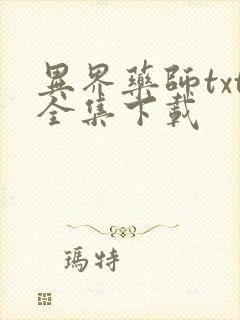 異界藥師txt
全集下載
瑪特